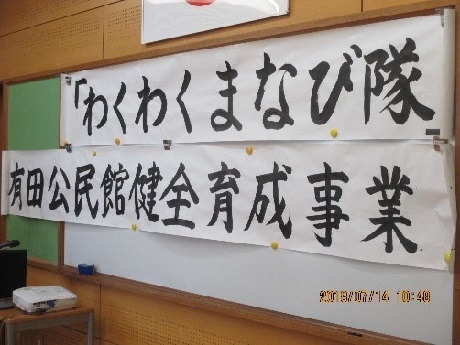 「わくわくまなび隊
有田公民館健全育成事業
2018/07/14 10:40